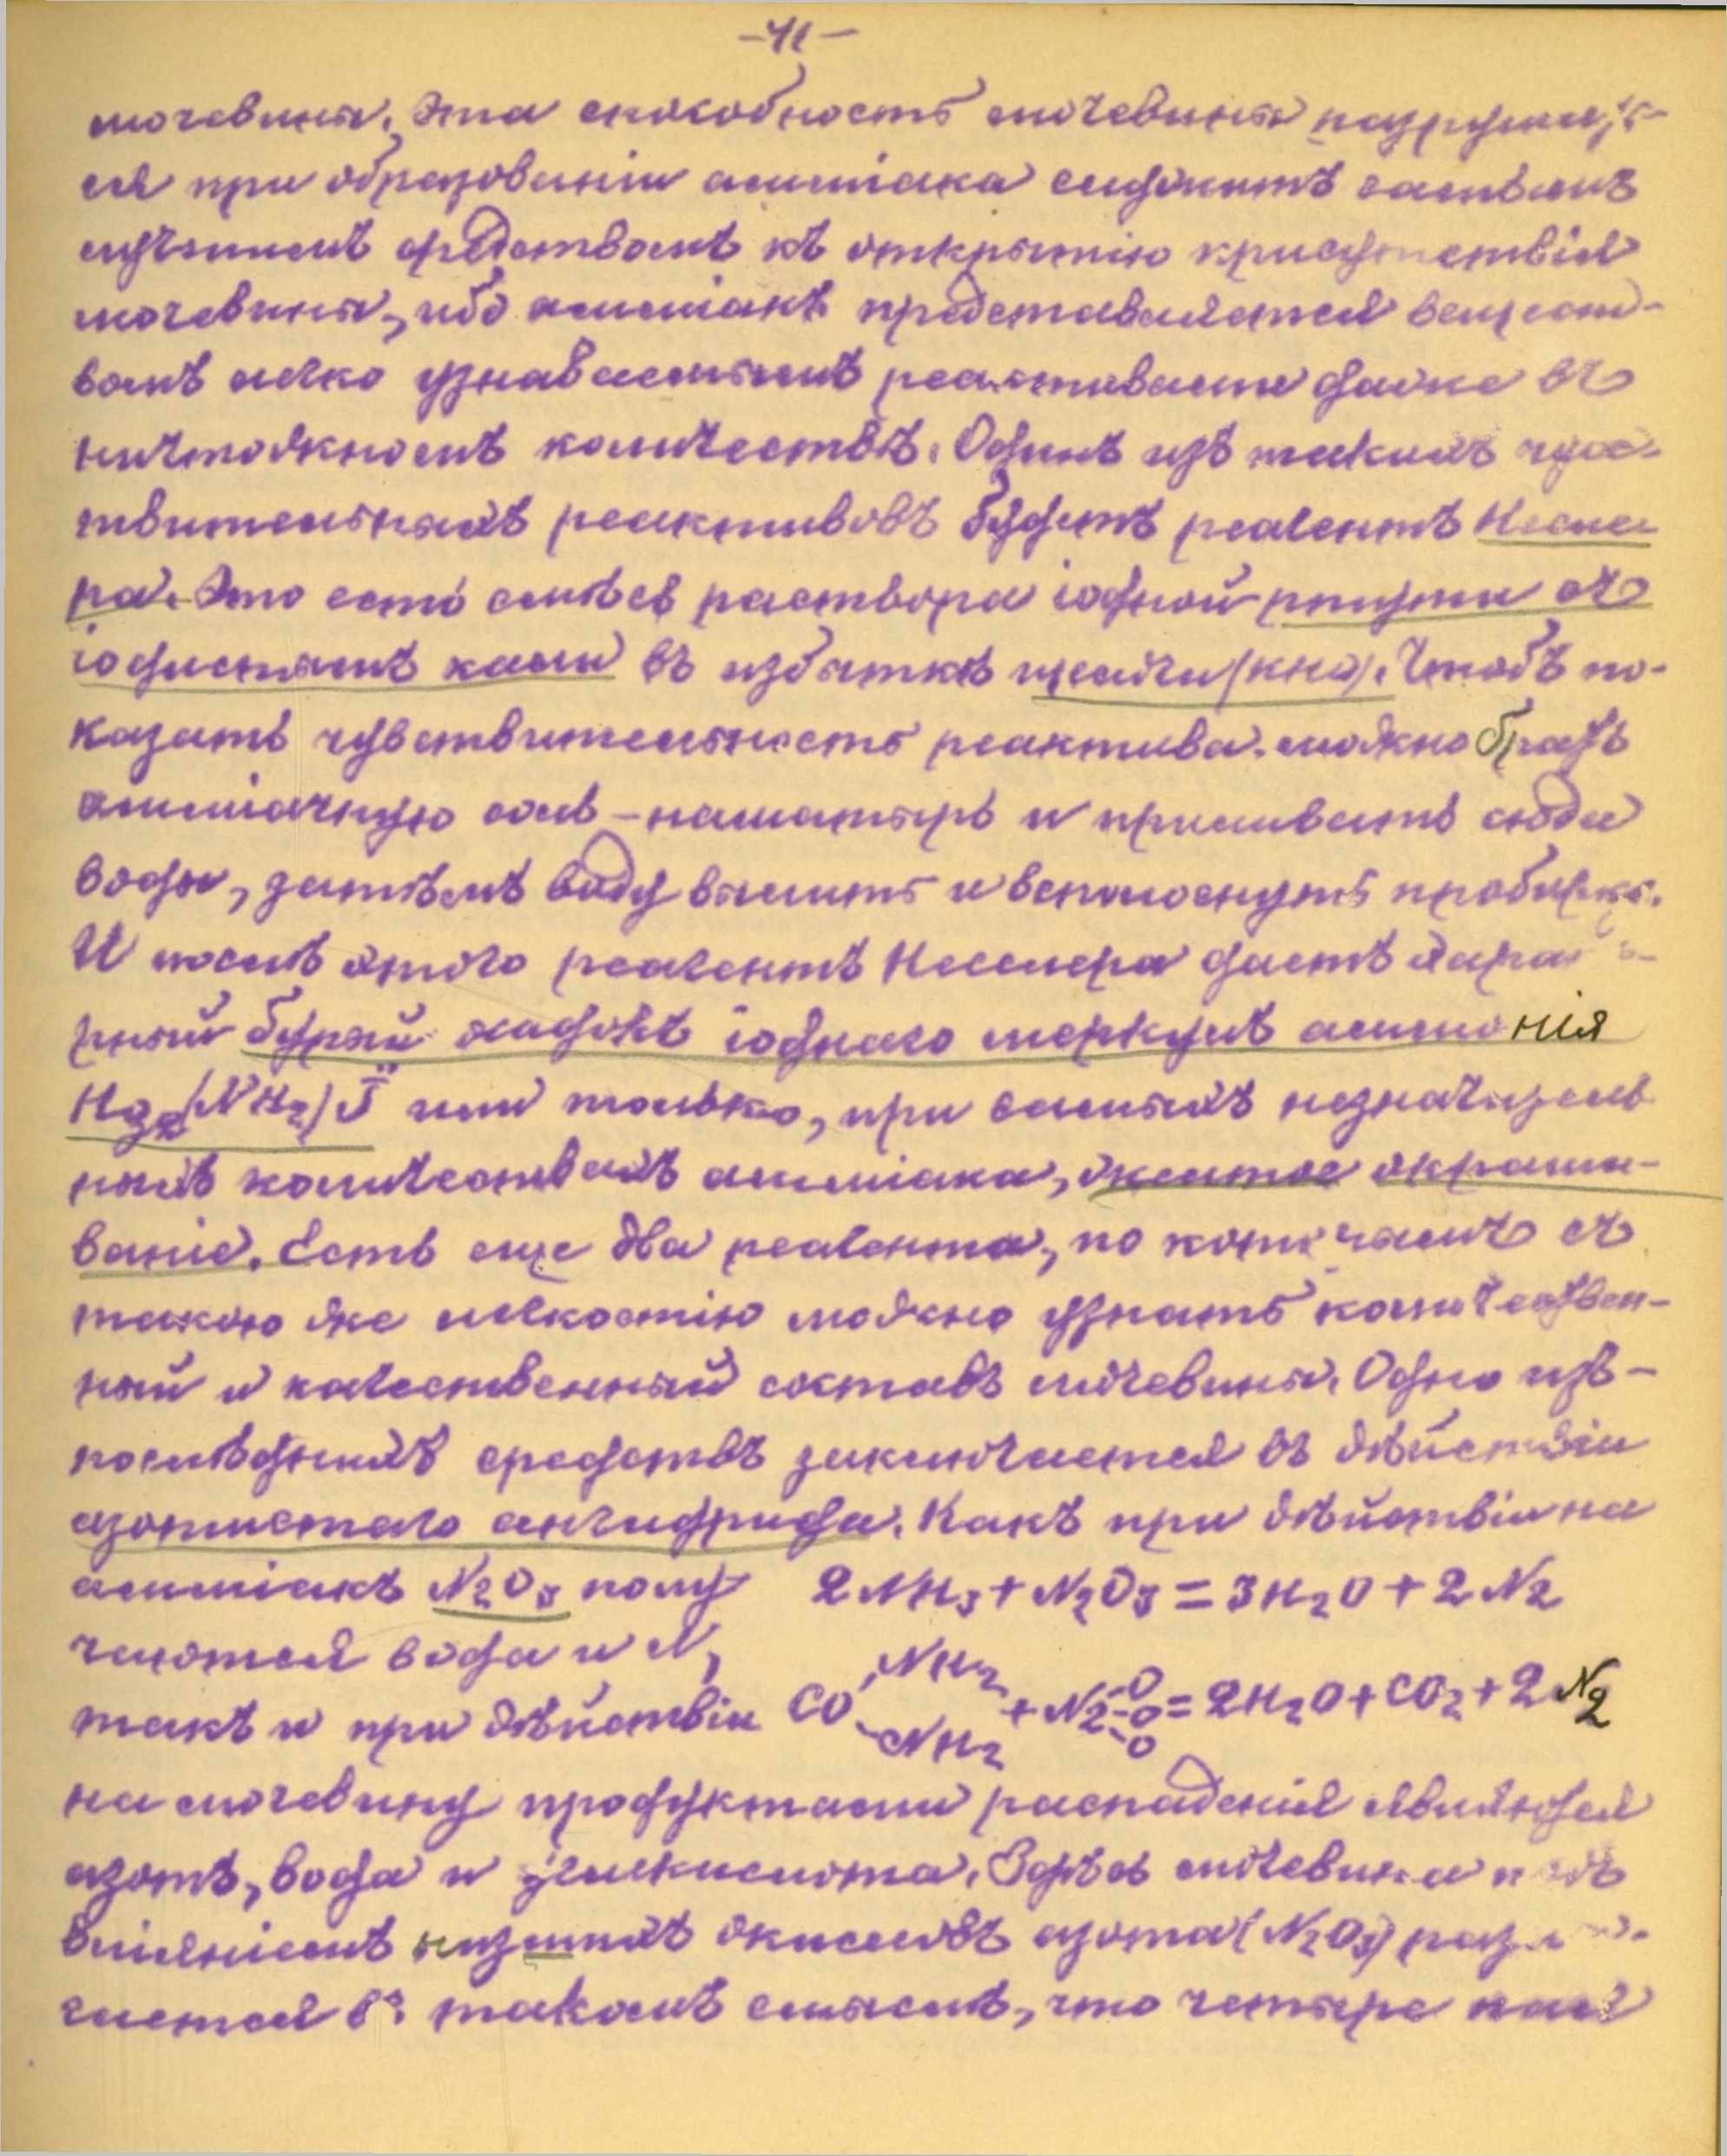 -41-
мочевины. Эта способность мочевины разрушать-
ся при образованіи амміака служитъ самымъ
лучшимъ средствомъ къ открытію присутствія
мочевины, ибо амміакъ представляется вещест-
вомъ легко узнаваемымъ реактивами даже въ
ничтожномъ количествѣ. Однимъ изъ такихъ чувс-
твительныхъ реактивовъ будетъ реагентъ Несле-
ра. Это есть смѣсь раствора іодной ртути съ
іодистымъ кали въ избыткѣ щелочи (КНО). Чтобъ по-
казать чувствительность реактива можно брать
амміачную соль - нашатырь и приливать сюда
воды, затѣмъ воду вылить и всполоснуть пробирку.
И послѣ этого реагентъ Несслера даетъ харак
рный бурый осадокъ іоднаго меркуръ аммонія
Hg2(NH2)J или только, при самыхъ незначитель
ныхъ количествахъ амміака, желтое окраши-
ваніе. Есть еще два реагента, по которымъ съ
такою же легкостію можно узнать количествен-
ный и качественный составъ мочевины. Одно изъ -
послѣднихъ средствъ заключается въ дѣйствіи
азотистаго ангидрида. Какъ при дѣйствіи на
амміакъ N2O3 полу 2NH3 + N2O3 = 3H2O + 2N2
чаются вода и N,
такъ и при дѣйствіи CO NH2 NH2 + N2 O O O = 2H2O + CO2 + 2N2
на мочевину продуктами распаденія являются
азотъ, вода и углекислота. Здѣсь мочевина подъ
вліяніемъ низшихъ окисловъ азота (N2O3)
чается въ такомъ смыслѣ, что четыре пая